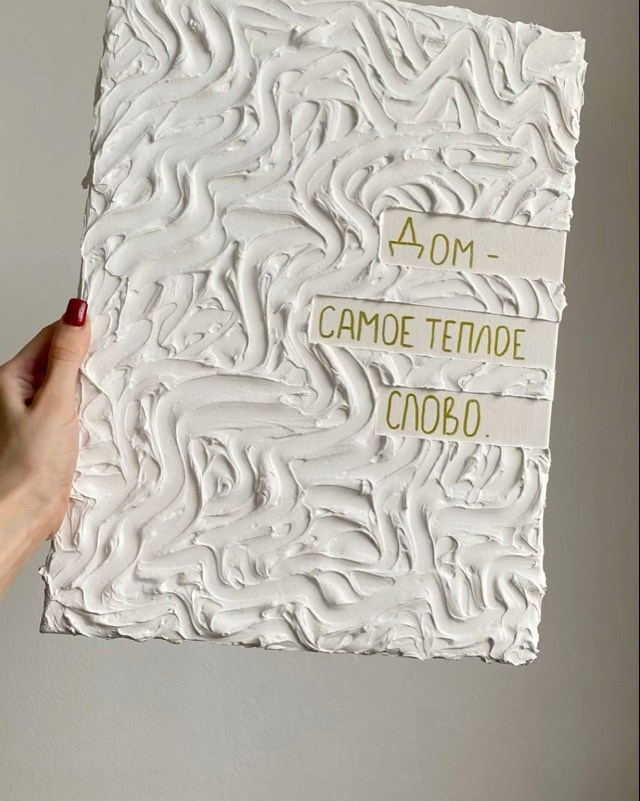 Дом -
САМОЕ ТЕПЛОЕ
СЛОВО.